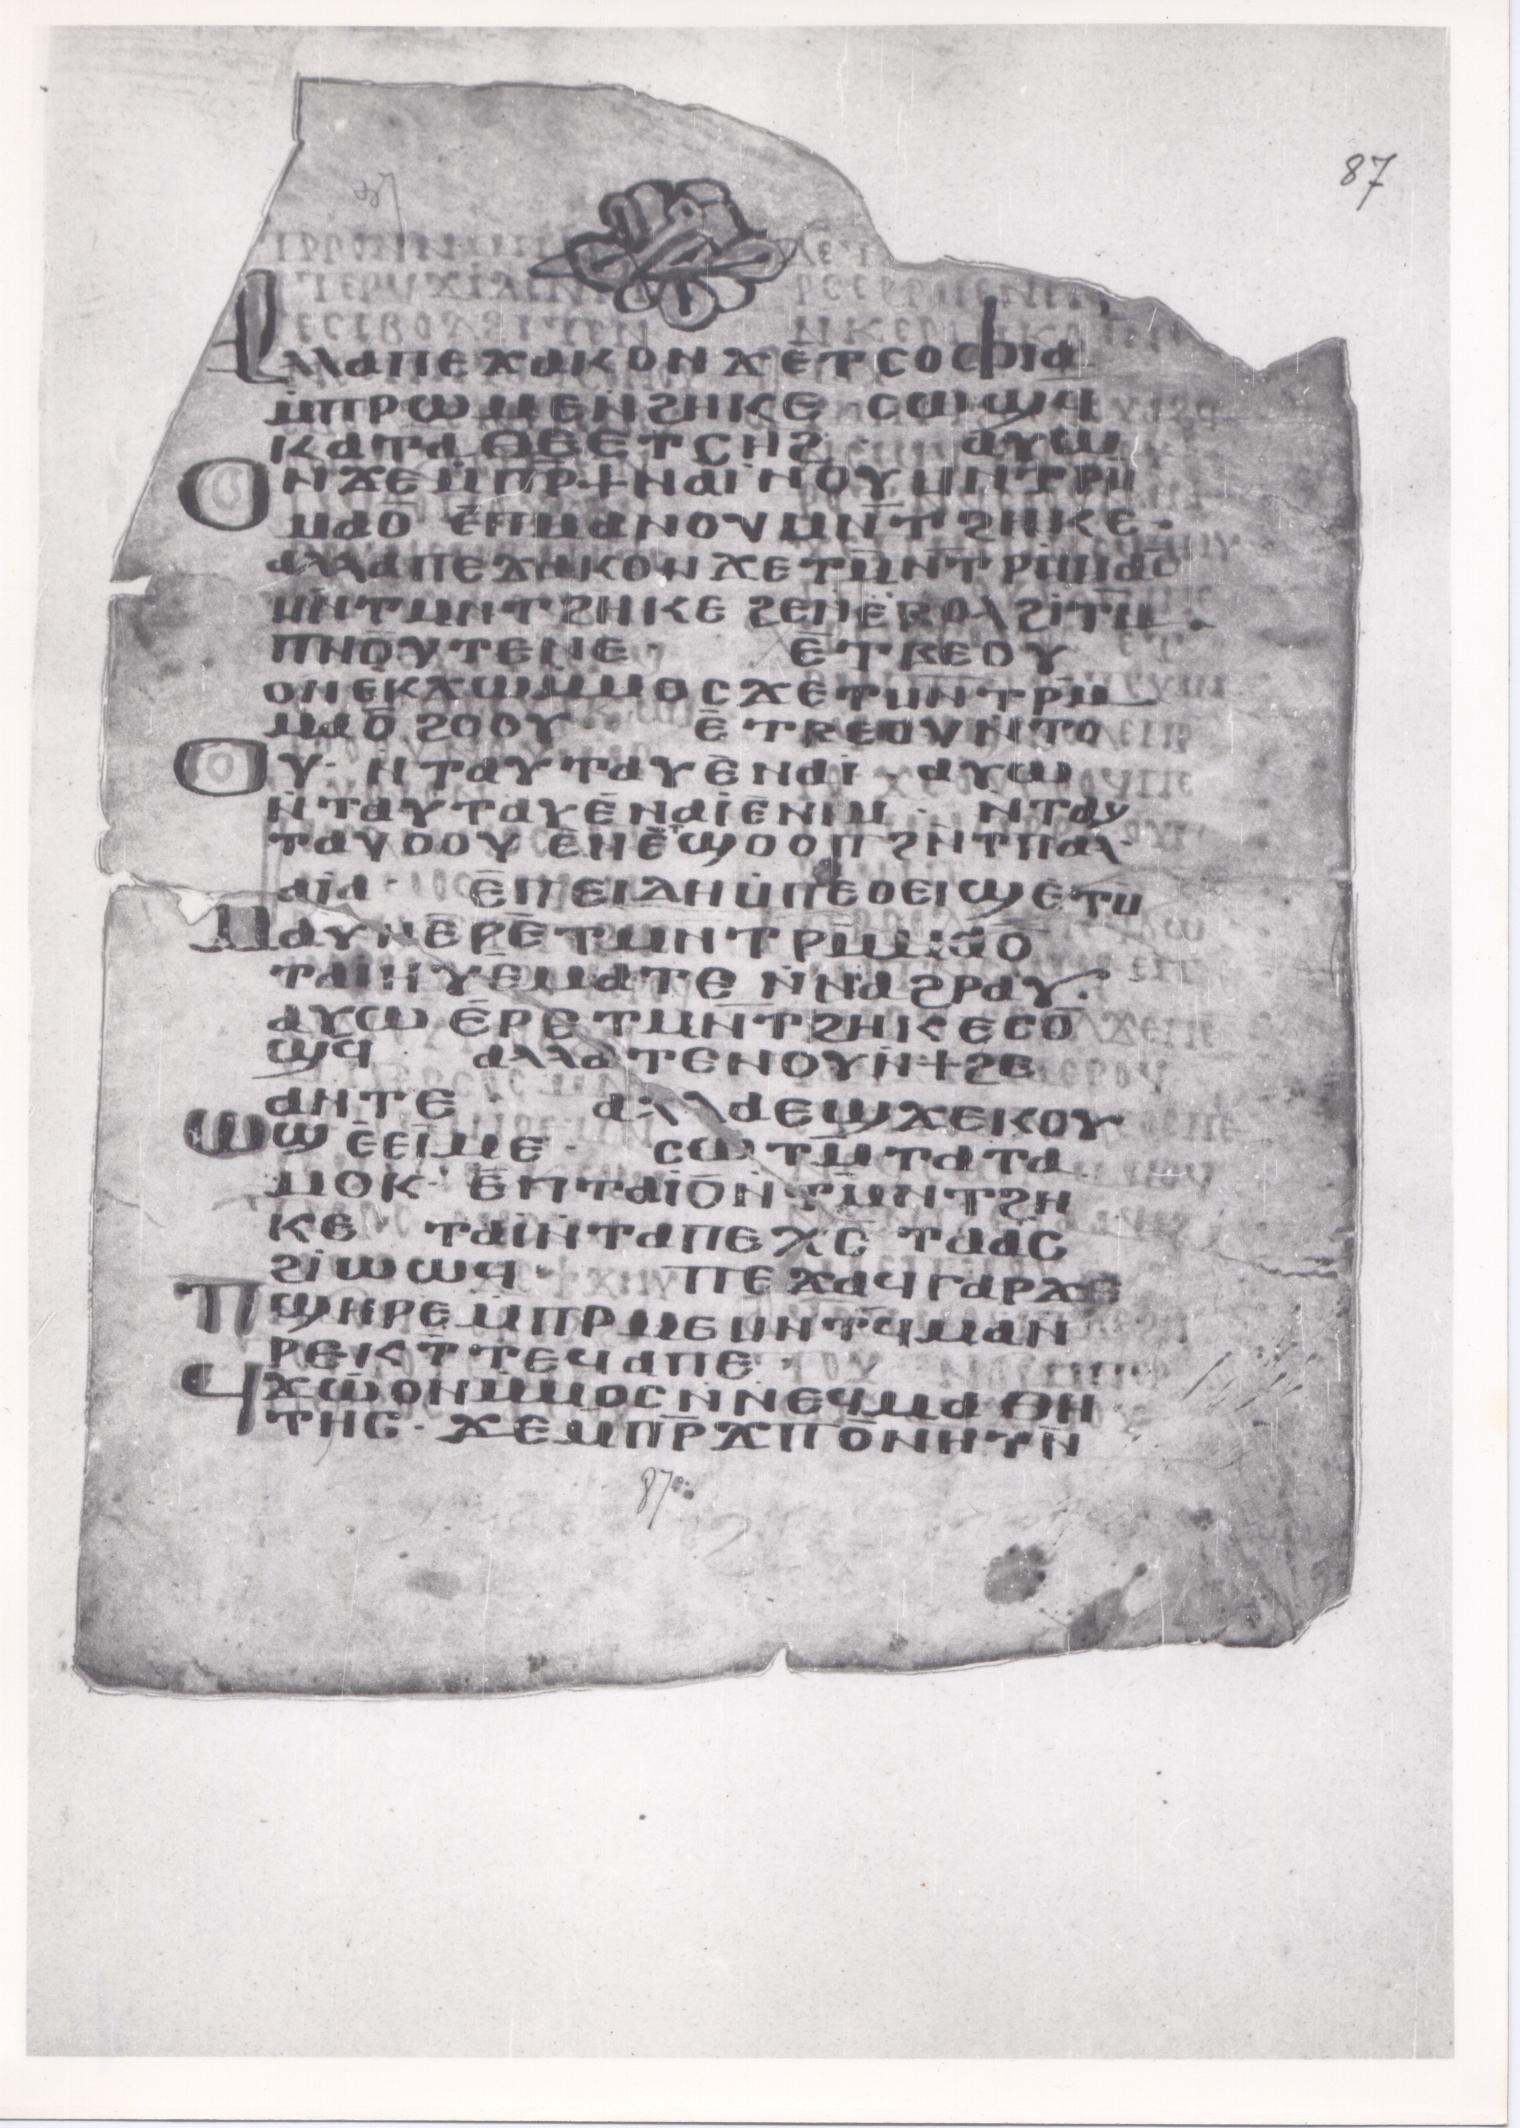 87
ⲁⲗⲗⲁ ⲡⲉϫⲁⲕ ⲟⲛ ϫⲉ ⲧⲥⲟⲫⲓⲁ
ⲙ̄ⲡⲣⲱⲙⲉ ⲛ̄ϩⲏⲕⲉ ⲥⲱϣϥ
ⲕⲁⲧⲁ ⲑⲉ ⲉⲧⲥⲏϩ · ⲁⲩⲱ
ⲟⲛ ϫⲉ ⲙ̄ⲡⲣ̄ϯ ⲛⲁⲓ ⲛⲟⲩⲙⲛⲧⲣⲙ̄
ⲙⲁⲟ̄ ⲉ̄ⲡⲙⲁ ⲛⲟⲩⲙⲛ̄ⲧϩⲏⲕⲉ ·
ⲁⲗⲗⲁ ⲡⲉϫⲁⲕ ⲟⲛ ϫⲉ ⲧⲙ̄ⲛ̄ⲧⲣⲙ̄ⲙⲁⲟ̄
ⲙⲛ̄ ⲧⲙⲛⲧϩⲏⲕⲉ ϩⲉⲛⲉⲃⲟⲗ ϩⲓⲧⲙ̄
ⲡⲛⲟⲩⲧⲉ ⲛⲉ · ⲉ̄ⲧⲃⲉ ⲟⲩ
ⲟⲛ ⲉⲕϫⲱ ⲙⲙⲟⲥ ϫⲉ ⲧⲙⲛⲧⲣⲙ̄
ⲙⲁⲟ̄ ϩⲟⲟⲩ · ⲉ̄ⲧⲃⲉ ⲟⲩ ⲛ̄ⲧⲟ
ⲟⲩ · ⲛ̄ⲧⲁⲩⲧⲁⲩⲉ̄ ⲛⲁⲓ · ⲁⲩⲱ
ⲛ̄ⲧⲁⲩⲧⲁⲩⲉ̄ ⲛⲁⲓ ⲉ̄ⲛⲓⲙ · ⲛⲧⲁⲩ
ⲧⲁⲩⲟⲟⲩ ⲉ̄ⲛⲉ̄ⲧϣⲟⲟⲡ ϩⲛ̄ ⲧⲡⲁⲗ
ⲁⲓⲁ · ⲉ̄ⲡⲉⲓⲇⲏ ⲙ̄ⲡⲉⲟⲉⲓϣ ⲉ̄ⲧⲙ̄
ⲙⲁⲩ ⲛⲉ̄ⲣⲉ̄ ⲧⲙⲛⲧⲣⲙ̄ⲙⲁⲟ̄
ⲧⲁⲓⲏⲩ ⲉⲙⲁⲧⲉ ⲛ̄ⲛⲁϩⲣⲁⲩ ·
ⲁⲩⲱ ⲉ̄ⲣⲉ ⲧⲙⲛ̄ⲧϩⲏⲕⲉ ⲥⲟ̄
ϣϥ · ⲁⲗⲗⲁ ⲧⲉⲛⲟⲩ ⲛ̄ϯϩⲉ
ⲁⲛ ⲧⲉ · ⲁⲗⲗⲁ ⲉϣϫⲉ ⲕⲟⲩ
ⲱϣ ⲉ̄ⲉⲓⲙⲉ · ⲥⲱⲧⲙ̄ ⲧⲁⲧⲁ
ⲙⲟⲕ · ⲉ̄ⲡⲧⲁⲓⲟ̄ ⲛ̄ⲧⲙ̄ⲛⲧϩⲏ
ⲕⲉ · ⲧⲁⲓ ⲛ̄ⲧⲁ ⲡⲉⲭⲥ̄ ⲧⲁⲁⲥ
ϩⲓⲱⲱϥ · ⲡⲉϫⲁϥ ⲅⲁⲣ ϫⲉ
ⲡϣⲏⲣⲉ ⲙ̄ⲡⲣⲙⲉ ⲙⲛ̄ⲧϥ̄ ⲙⲁ ⲛ
ⲣⲉⲕⲧ̄ ⲧⲉϥⲁⲡⲉ ·
ϥϫⲱ̄ ⲟⲛ ⲙⲙⲟⲥ ⲛ̄ⲛⲉϥⲙⲁⲑⲏ
ⲧⲏⲥ · ϫⲉ ⲙⲡⲣ̄ϫⲡⲟ̄ ⲛⲏⲧⲛ̄
87